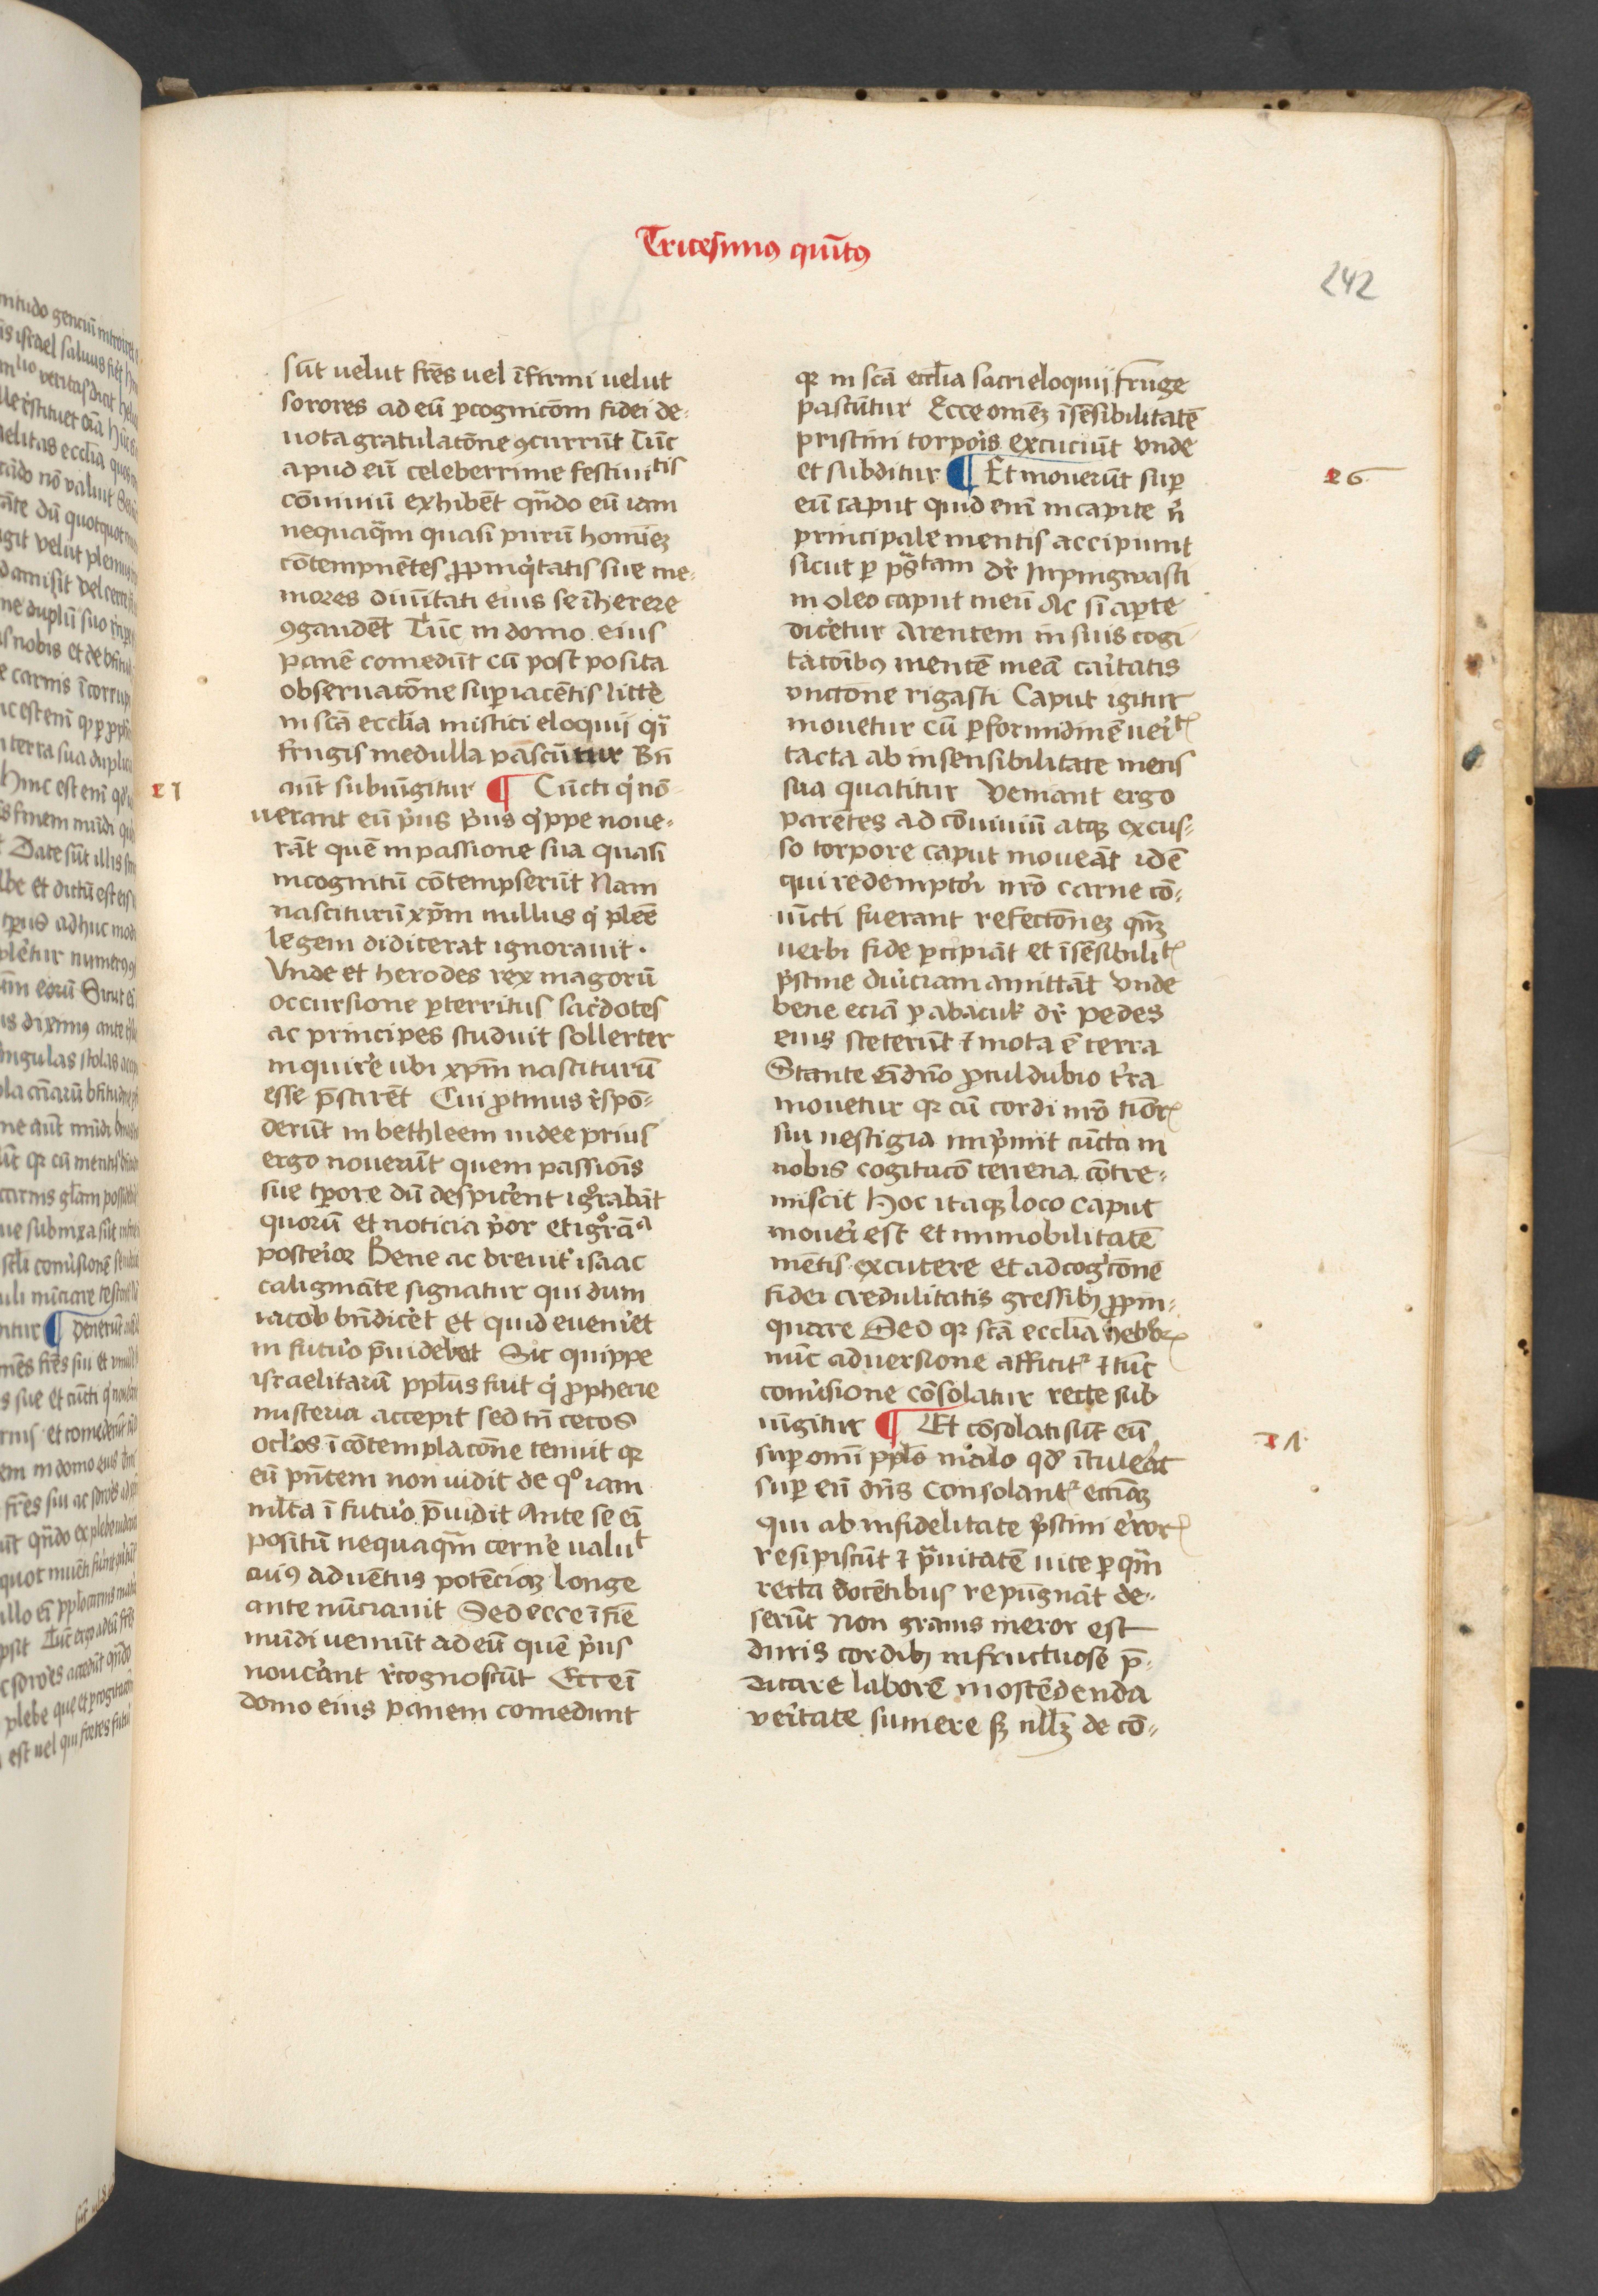 Tricesimꝰ quītꝰ
242
sūt uelut frēs uel īfirmi uelut
sorores ad eū ꝑcognicōm fidei de-
uota gratulatōne ꝯcurrūt Tūc
apud eū celeberrime festiuitis
cōuiuiū exhibēt qn̄do eū iam
nequaq̄m quasi purū homīeꝫ
cōtempnētes ꝓpinq̇tatis sue me-
mores diuītati eius se īherere
ꝯgaudēt Tūc in domo eius
panē comedūt cū post posita
obseruatōne suꝑiacētis litt̄e
in scā eccl̄ia mistici eloquij qͥ
frugis medulla pascūtur Bn̄
aūt subiūgitur ¶ Cūcti q̇ nō-
21
uerant eū pͥus pͥus q̇ppe noue-
rāt quē in passione sua quasi
incognitū cōtempserūt Nam
nasciturū xp̄m nullus q̇ pleē
legem didicerat ignorauit ·
Vnde et herodes rex magorū
occursione ꝑterritus sac̓dotes
ac principes studuit sollerter
inquire̓ ubi xp̄m nasciturū
esse p̄scirēt Cui ꝓtinus r̓spō-
derūt in bethleem iudee prius
ergo nouerūt quem passiōis
sue tꝑore dū despice̓nt igͦrabāt
quorū et noticia pͥor et igͦrāᵃ
posteior Bene ac breuit̓ isaac
caligināte signatur qui dum
iacob bn̄dice̓t et quid eueni̓et
in futuo p̄uidebat Sic quippe
israelitarū ppl̄us fuit q̇ ꝓphecie
misteria accepit sed tn̄ cecos
ocl̓os ī cōtemplacōne tenuit qꝛ
eū pn̄tem non uidit de qͦ iam
ml̄ta ī futuo p̄uidit Ante se eī
positū nequaq̄m cerne̓ ualuᵗ
cuiꝰ aduētus potēciaꝫ longe
ante nūciauit Sed ecce ī fīe
mūdi ueniūt ad eū quē pͥus
noue̓ant r̓cognoscūt Ecce ī
domo eius panem comedunt
qꝛ in scā eccl̄ia sacri eloquij fruge
pascūtur Ecce omēꝫ īsēsibilitatē
pristini torpois excuciūt vnde
et subditur ¶ Et mouerūt suꝑ
26
eū caput quid enī in capite n̄
principale mentis accipiunt
sicut ꝑ psᵃtam dr̄ Inpingwasti
in oleo caput meū Ac si aꝑte
dice̓tur Arentem in suis cogi
tatōibꝰ mentē meā caitatis
vnctōne rigasti Caput igitur
mouetur cū ꝑ formidinē ueitꝭ
tacta ab insensibilitate mens
sua quatitur Veniant ergo
parētes ad cōuiuiū atqꝫ excus-
so torpore caput moueāt idē
qui redemptoi nr̄o carne cō-
iūcti fuerant refectōneꝫ qn̄ꝫ
uerbi fide ꝑcipiāt et īsēsibilitꝭ
pͥstine duiciam amittāt vnde
bene eciā ꝑ abacuk dr̄ pedes
eius steterūt ⁊ mota ē terra
Stante eī dn̄o ꝓculdubio t̓ra
mouetur qꝛ cū cordi nr̄o timorꝭ
sui uestigia impͥmit cūcta in
nobis cogitacō terrena cōtre-
miscit Hoc itaqꝫ loco caput
mouei est et inmobilitatē
mētis excutere et ad cogͥcōnē
fidei credulitatis gressibꝫ ꝓpin-
quare Sed qꝛ scā eccl̄ia hebrꝭ
nūc aduersione afficit᷑ ⁊ tūc
conu̓sione cōsolatur recte sub
iūgitur ¶ Et cōsolati sūt eū
21
suꝑ omī ppl̄o malo qd̓ ītule̓at
suꝑ eū dn̄s Consolant᷑ ecciaꝫ
qui ab infidelitate pͥstini eroꝛꝭ
resipiscūt ⁊ pᵃuitatē uite ꝑ qᵃm
recta docētibus repugnāt de-
serūt Non grauis meror est
duris cordibꝫ infructuose p̄-
dicare laborē in ostēdenda
ueitate sumere sꝫ ull̄ꝫ de cō-